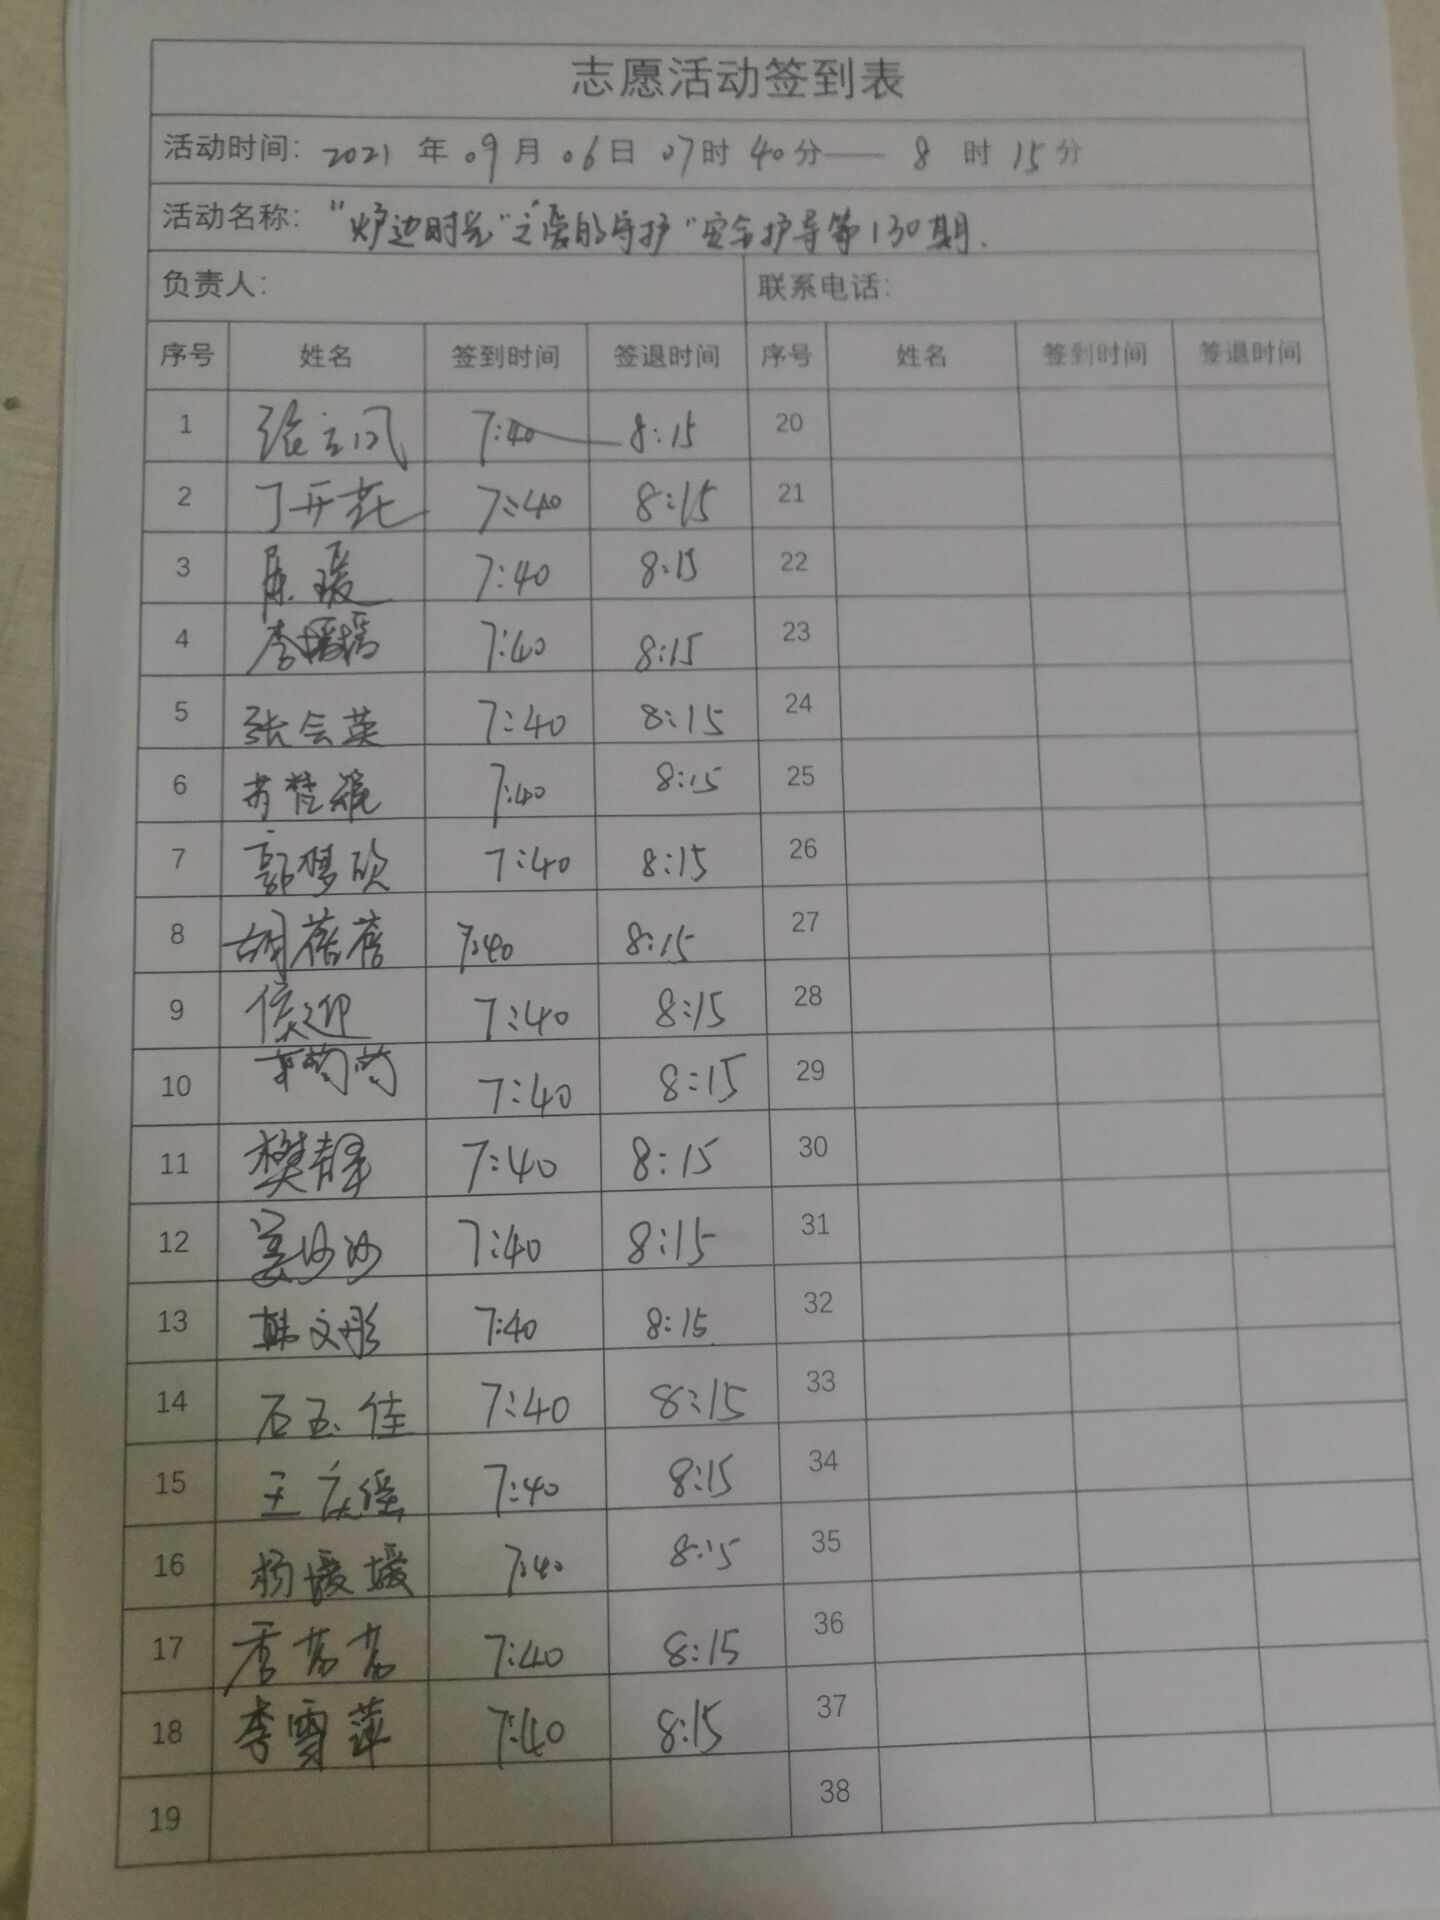 志愿活动签到表
活动时间: 2021 年 09 月 06 日 07 时 40 分 —— 8 时 15 分
活动名称: "炉边时光"之"爱的守护"安全护导第130期.
负责人: 联系电话:
序号 姓名 签到时间 签退时间 序号 姓名 签到时间 签退时间
1 7:40 8:15 20
2 丁开花 7:40 8:15 21
3 陈瑷 7:40 8:15 22
4 李 7:40 8:15 23
5 张会英 7:40 8:15 24
6 7:40 8:15 25
7 郭梦欣 7:40 8:15 26
8 胡蓓蓓 7:40 8:15 27
9 侯迎 7:40 8:15 28
10 7:40 8:15 29
11 樊静 7:40 8:15 30
12 姜沙沙 7:40 8:15 31
13 韩文彤 7:40 8:15 32
14 石玉佳 7:40 8:15 33
15 王庆 7:40 8:15 34
16 杨媛媛 7:40 8:15 35
17 7:40 8:15 36
18 李雪萍 7:40 8:15 37
19 38